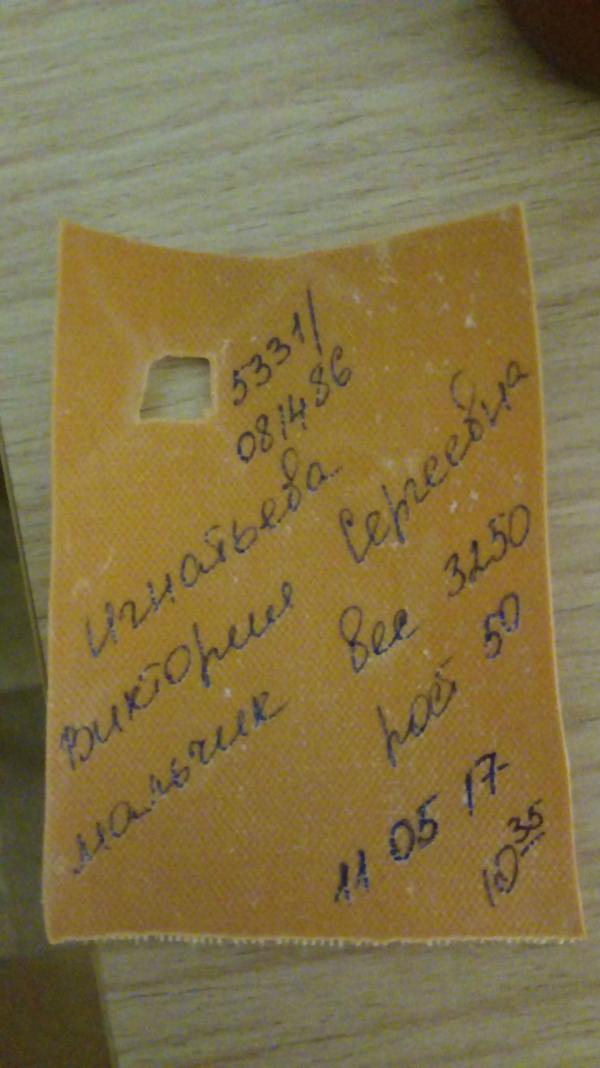 5331/
081486
Игнатьева
Виктория Сергеевна
мальчик вес 3250
рост 50
11 05 17
10 35